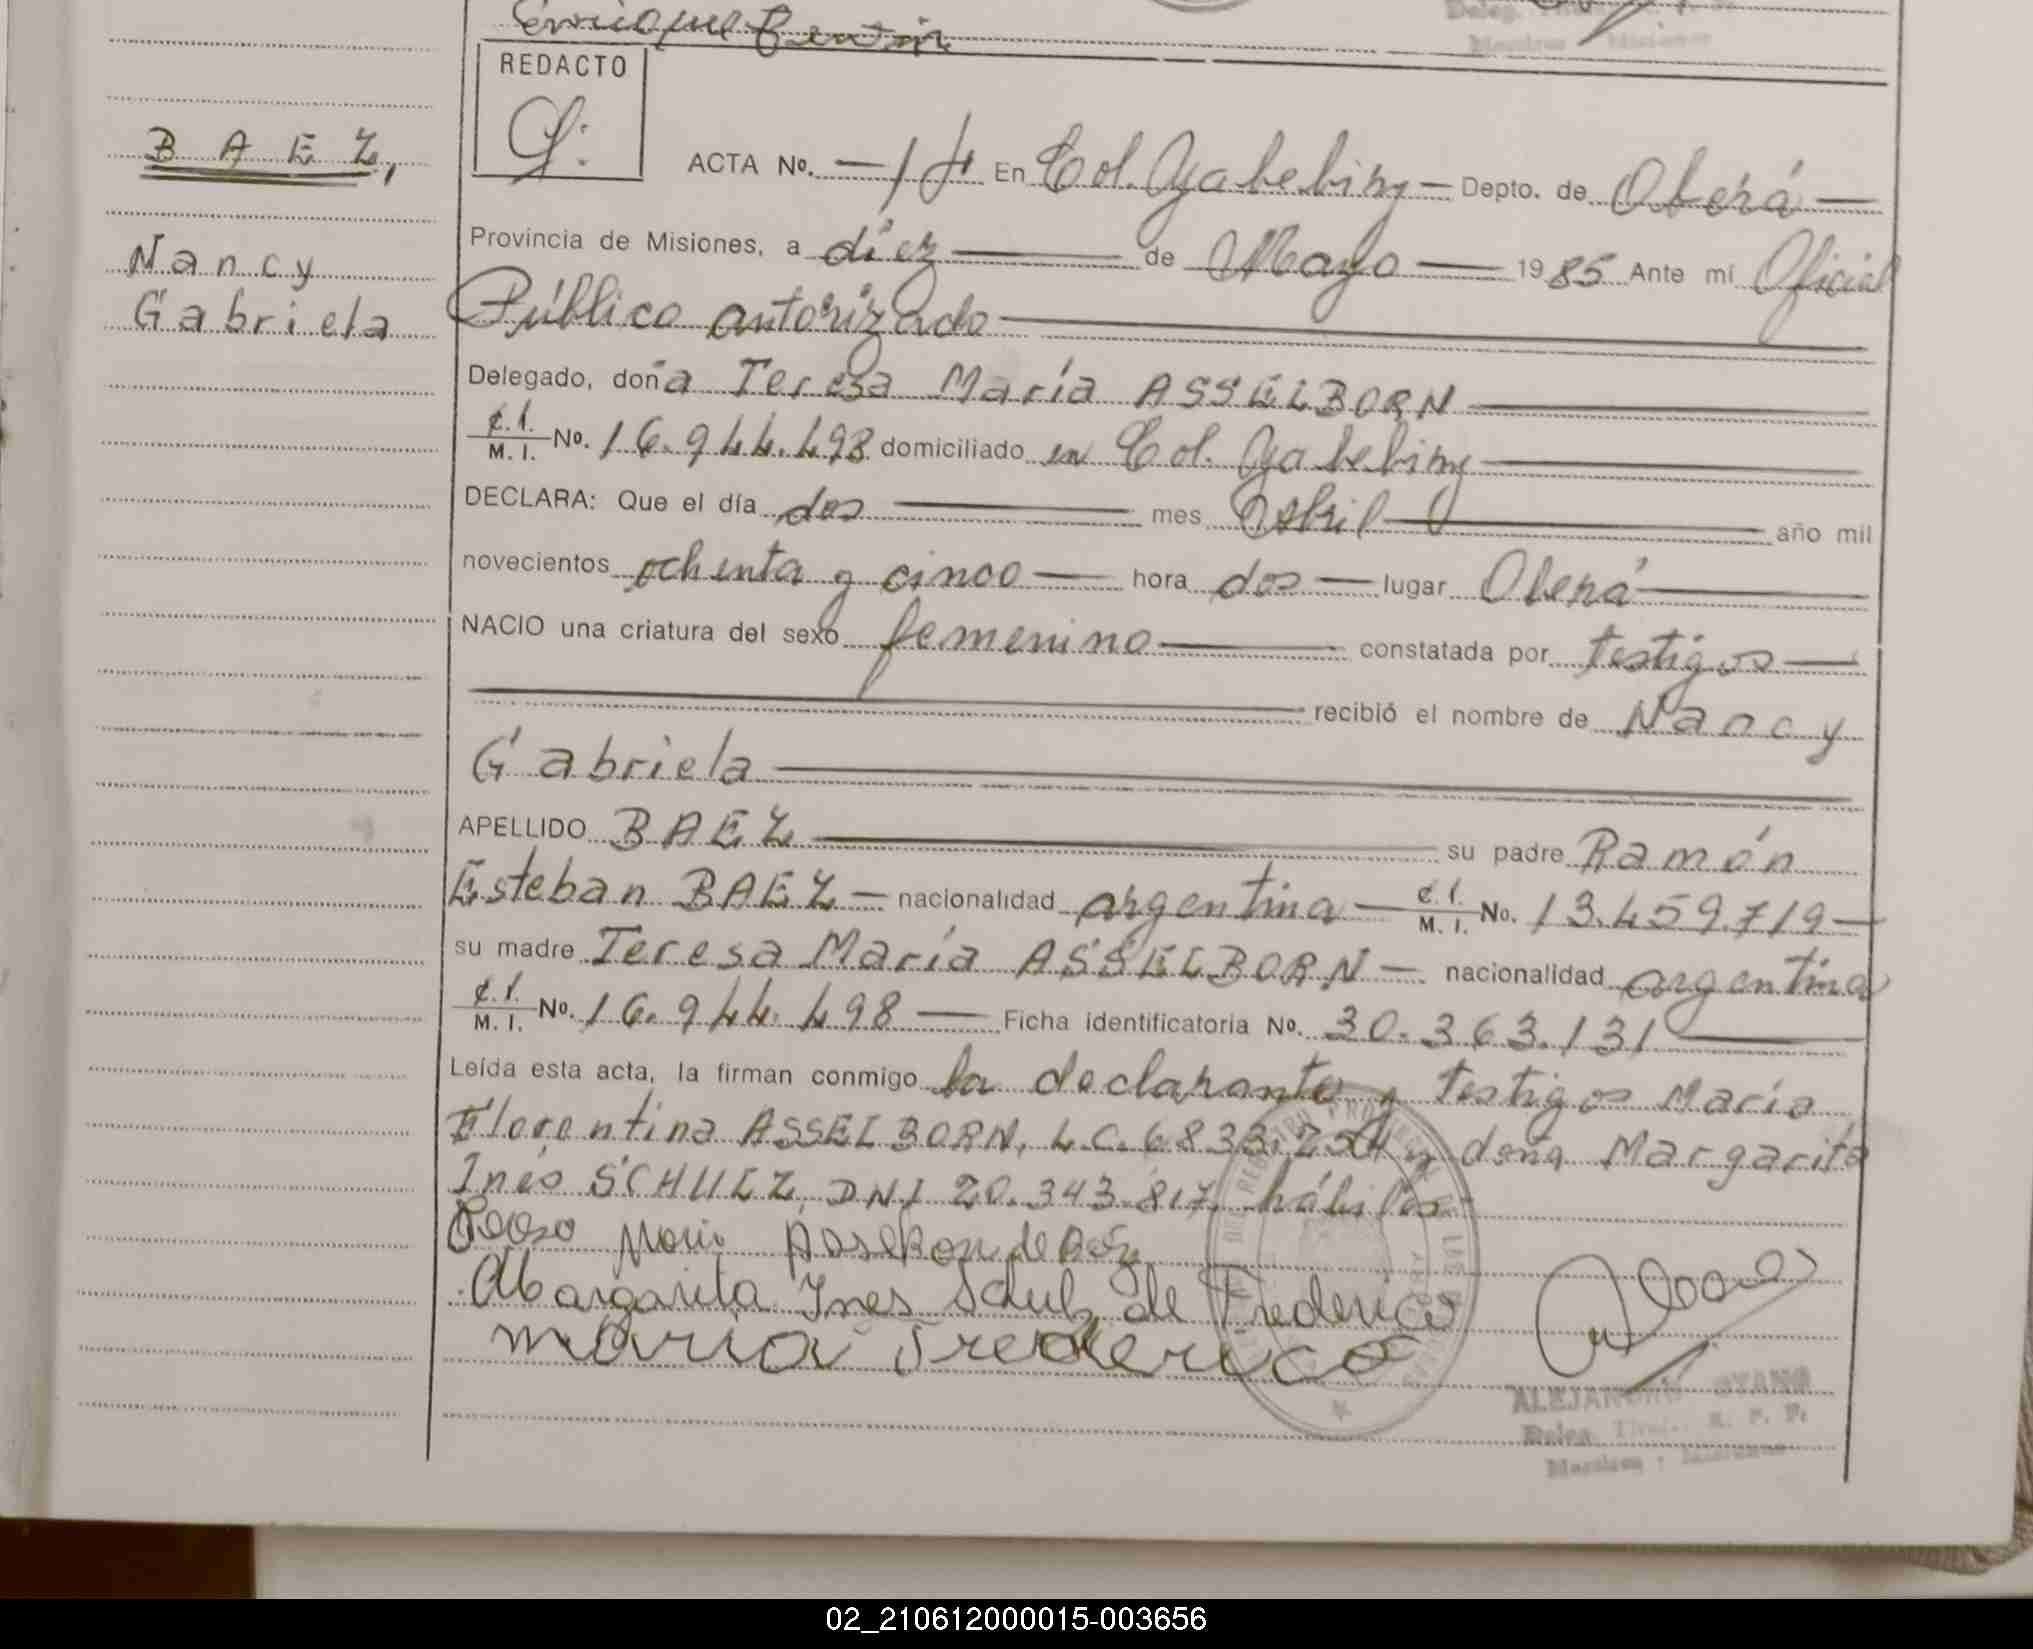 Enrique
REDACTO
BAEZ,
Nancy
Gabriela
ACTA No. — 14 En Col. Yabebiry — Depto. de Oberá —
Provincia de Misiones, a diez — de Mayo — 1985 Ante mí Oficial
Público autorizado —
Delegado, doña Teresa María ASSELBORN —
C.I.
M. I. No. 16.944.498 domiciliado en Col. Yabebiry —
DECLARA: Que el día dos — mes Abril — año mil
novecientos ochenta y cinco — hora dos — lugar Oberá —
NACIO una criatura del sexo femenino — constatada por testigos —
— recibió el nombre de Nancy
Gabriela —
APELLIDO BAEZ — su padre Ramón
Esteban BAEZ — nacionalidad argentina — C.I.
M. I. No. 13.459.719 —
su madre Teresa María ASSELBORN — nacionalidad argentina
C.I.
M. I. No. 16.944.498 — Ficha identificatoria No. 30.363.131 —
Leída esta acta, la firman conmigo la declarante y testigos María
Florentina ASSELBORN, L.C. 6833.254 y doña Margarita
Inés SCHULZ, DNI 20.343.817, hábiles
Margarita Ines Schulz de Frederico
maria Frederico
ALEJANDRO
Deleg.
02_210612000015-003656